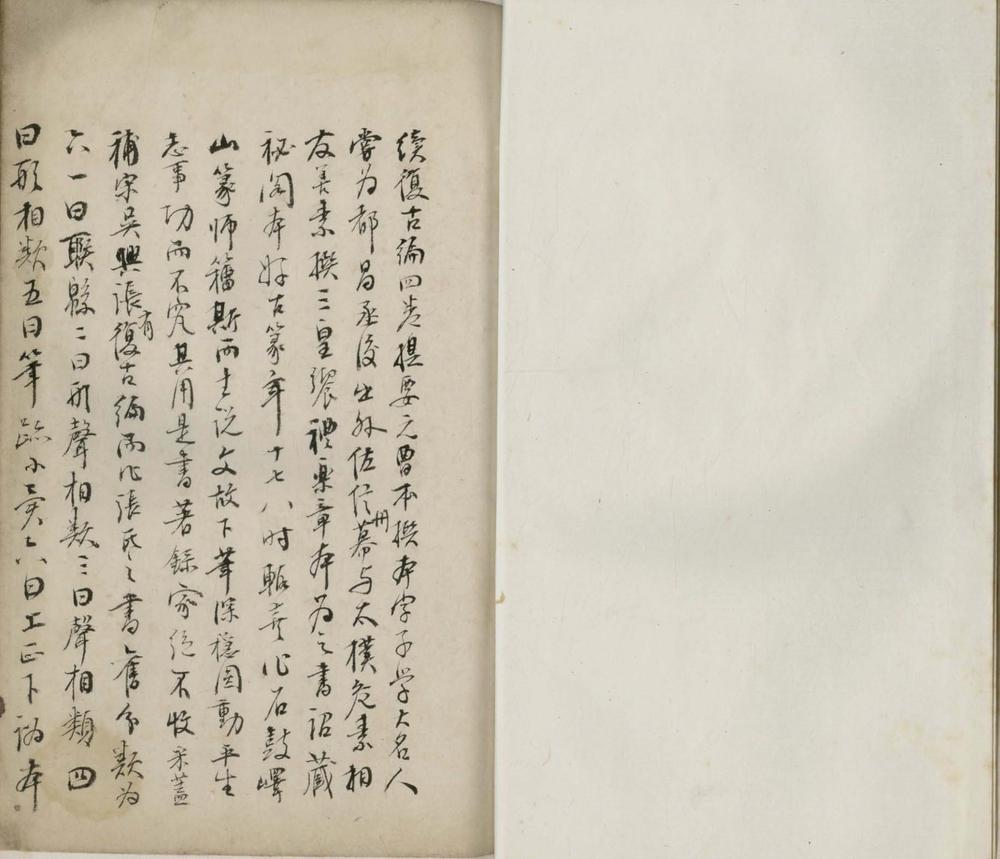 續復古編四卷提要元曹本撰本字子學大名人
嘗為都昌丞後出外佐信州幕与太樸危素相
友善素撰三皇饗禮樂章本為之書詔藏
祕閣本好古篆年十七八时輒喜作石鼓嶧
山篆師籀斯而主说文故下筆深穩圓動平生
志事功而不究其用是書著錄家絕不收采蓋
補宋吳興張有復古編而作張氏之書舊分類為
六一曰聯緜二曰形聲相類三曰聲相類四
曰形相類五曰筆跡小異六曰上正下訛本